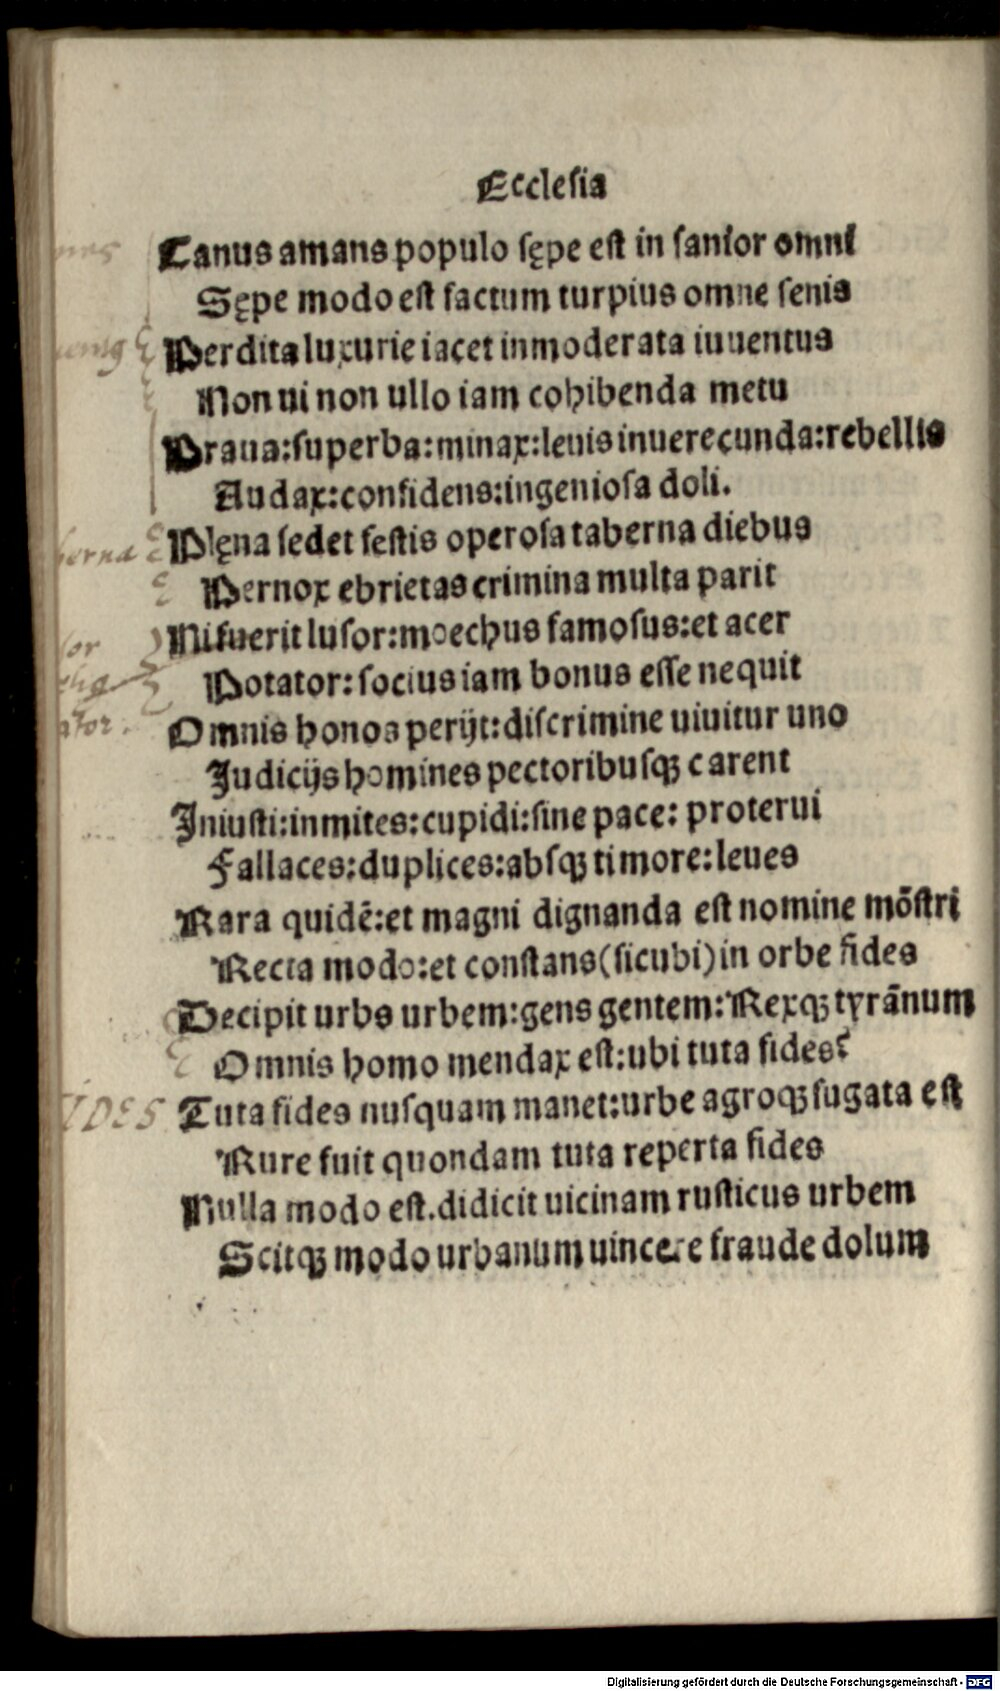 Ecclesia
Canus amans populo sępe est in sanior omni
Sępe modo est factum turpius omne senis
Perdita luxurie iacet inmoderata iuuentus
Non ui non ullo iam cohibenda metu
Praua:superba:minax:leuis inuerecunda:rebellis
Audax:confidens:ingeniosa doli.
Plęna sedet festis operosa taberna diebus
Pernox ebrietas crimina multa parit
Ni fuerit lusor:moechus famosus:et acer
Potator: socius iam bonus esse nequit
Omnis honos perijt:discrimine uiuitur uno
Judicijs homines pectoribusqꝫ carent
Iniusti:inmites:cupidi:sine pace: proterui
Fallaces:duplices:absqꝫ timore:leues
Rara quidē:et magni dignanda est nomine mōstri
Recta modo:et constans(sicubi)in orbe fides
Decipit urbs urbem:gens gentem:Rexqꝫ tyrānum
Omnis homo mendax est:ubi tuta fides?
FIDES Tuta fides nusquam manet:urbe agroqꝫ fugata est
Rure fuit quondam tuta reperta fides
Nulla modo est.didicit uicinam rusticus urbem
Scitqꝫ modo urbanum uincere fraude dolum
Digitalisierung gefördert durch die Deutsche Forschungsgemeinschaft - DFG